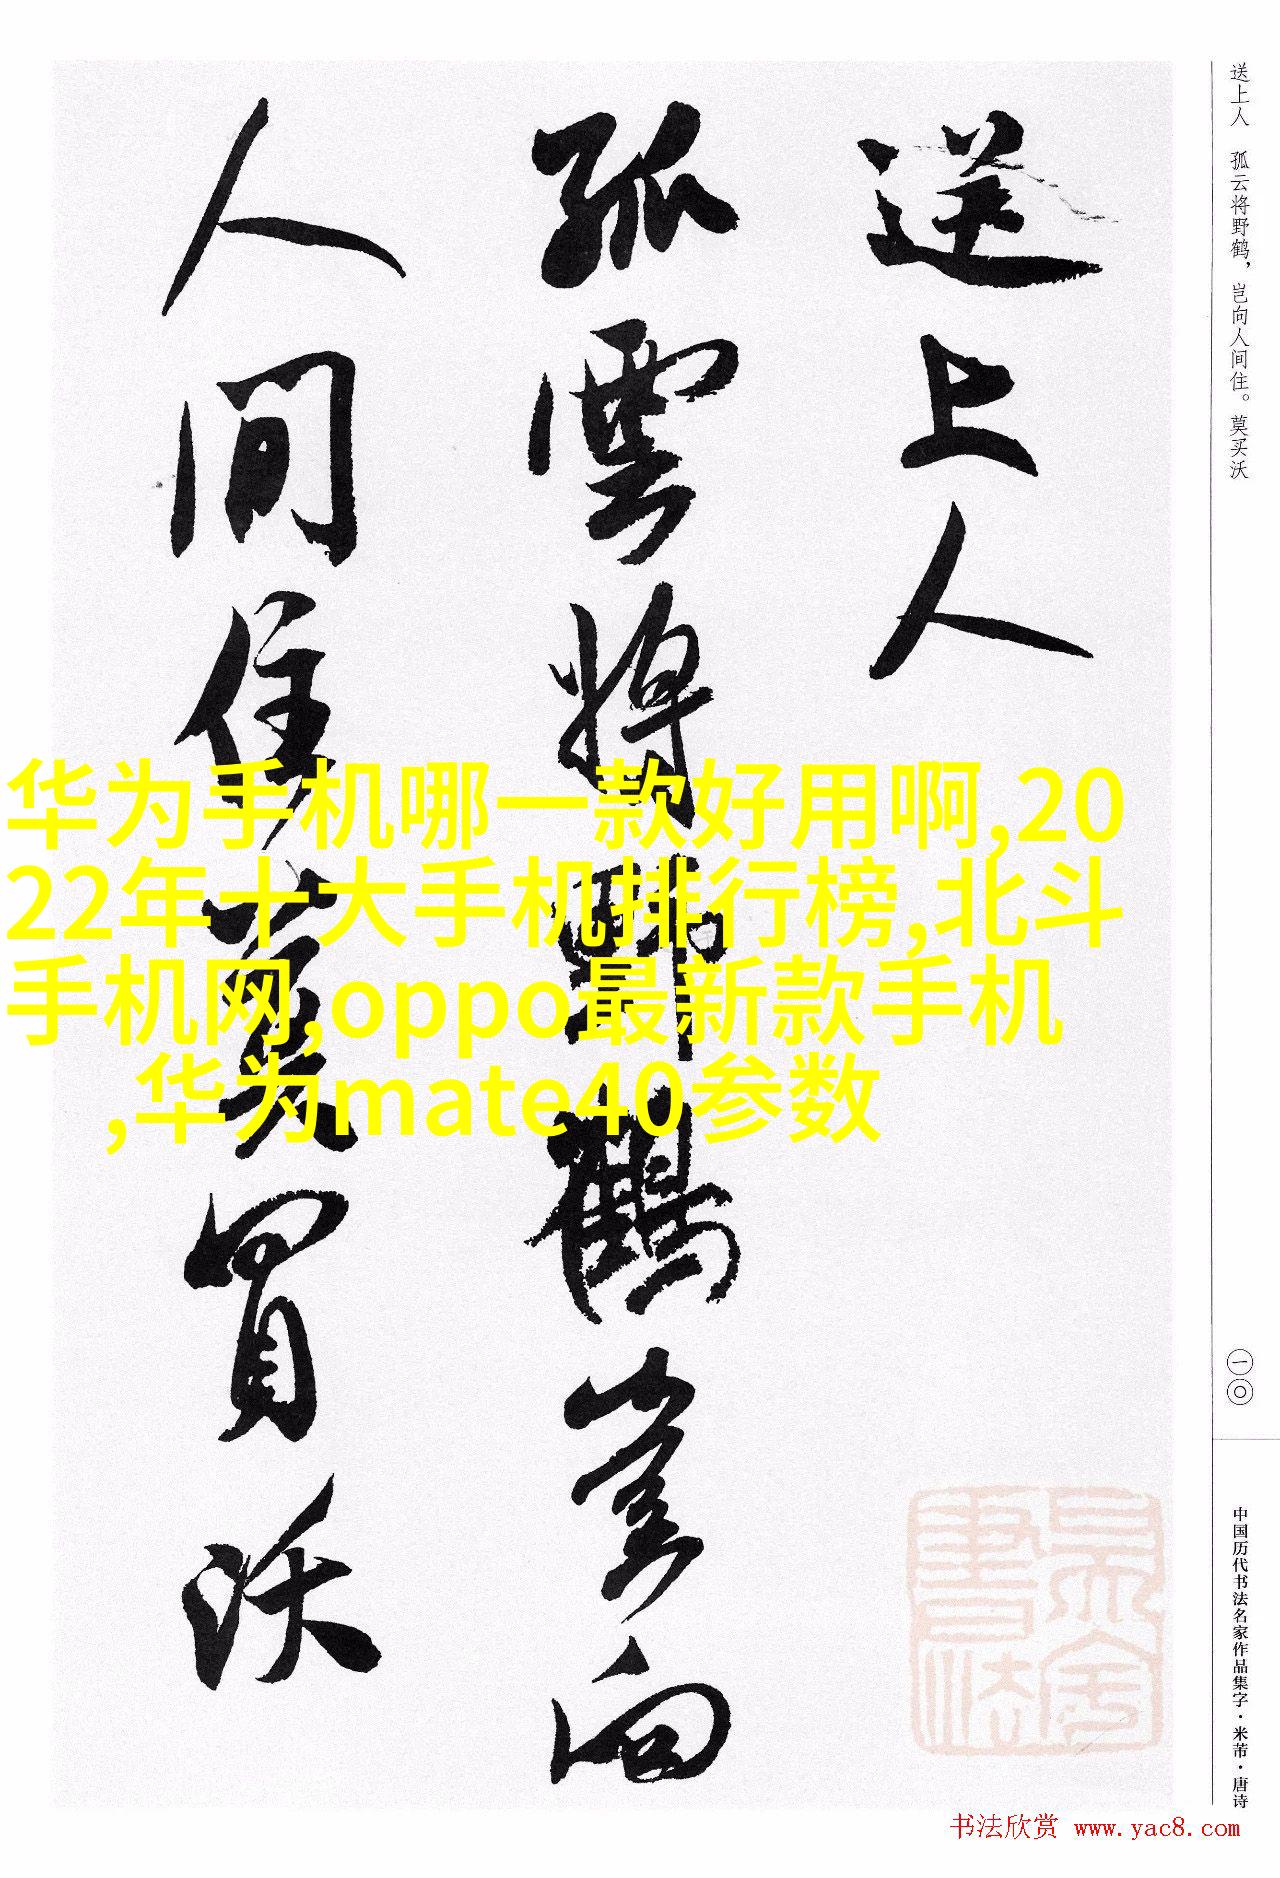 送上人
孤雲將野鶴豈向
人間住莫買沃
送上人 孤云将野鹤，岂向人间住。莫买沃
一〇
中国历代书法名家作品集字·米芾·唐诗
华为手机哪一款好用啊,20
22年十大手机排行榜,北斗
手机网,oppo最新款手机
,华为mate40参数
书法欣赏 www.yac8.com